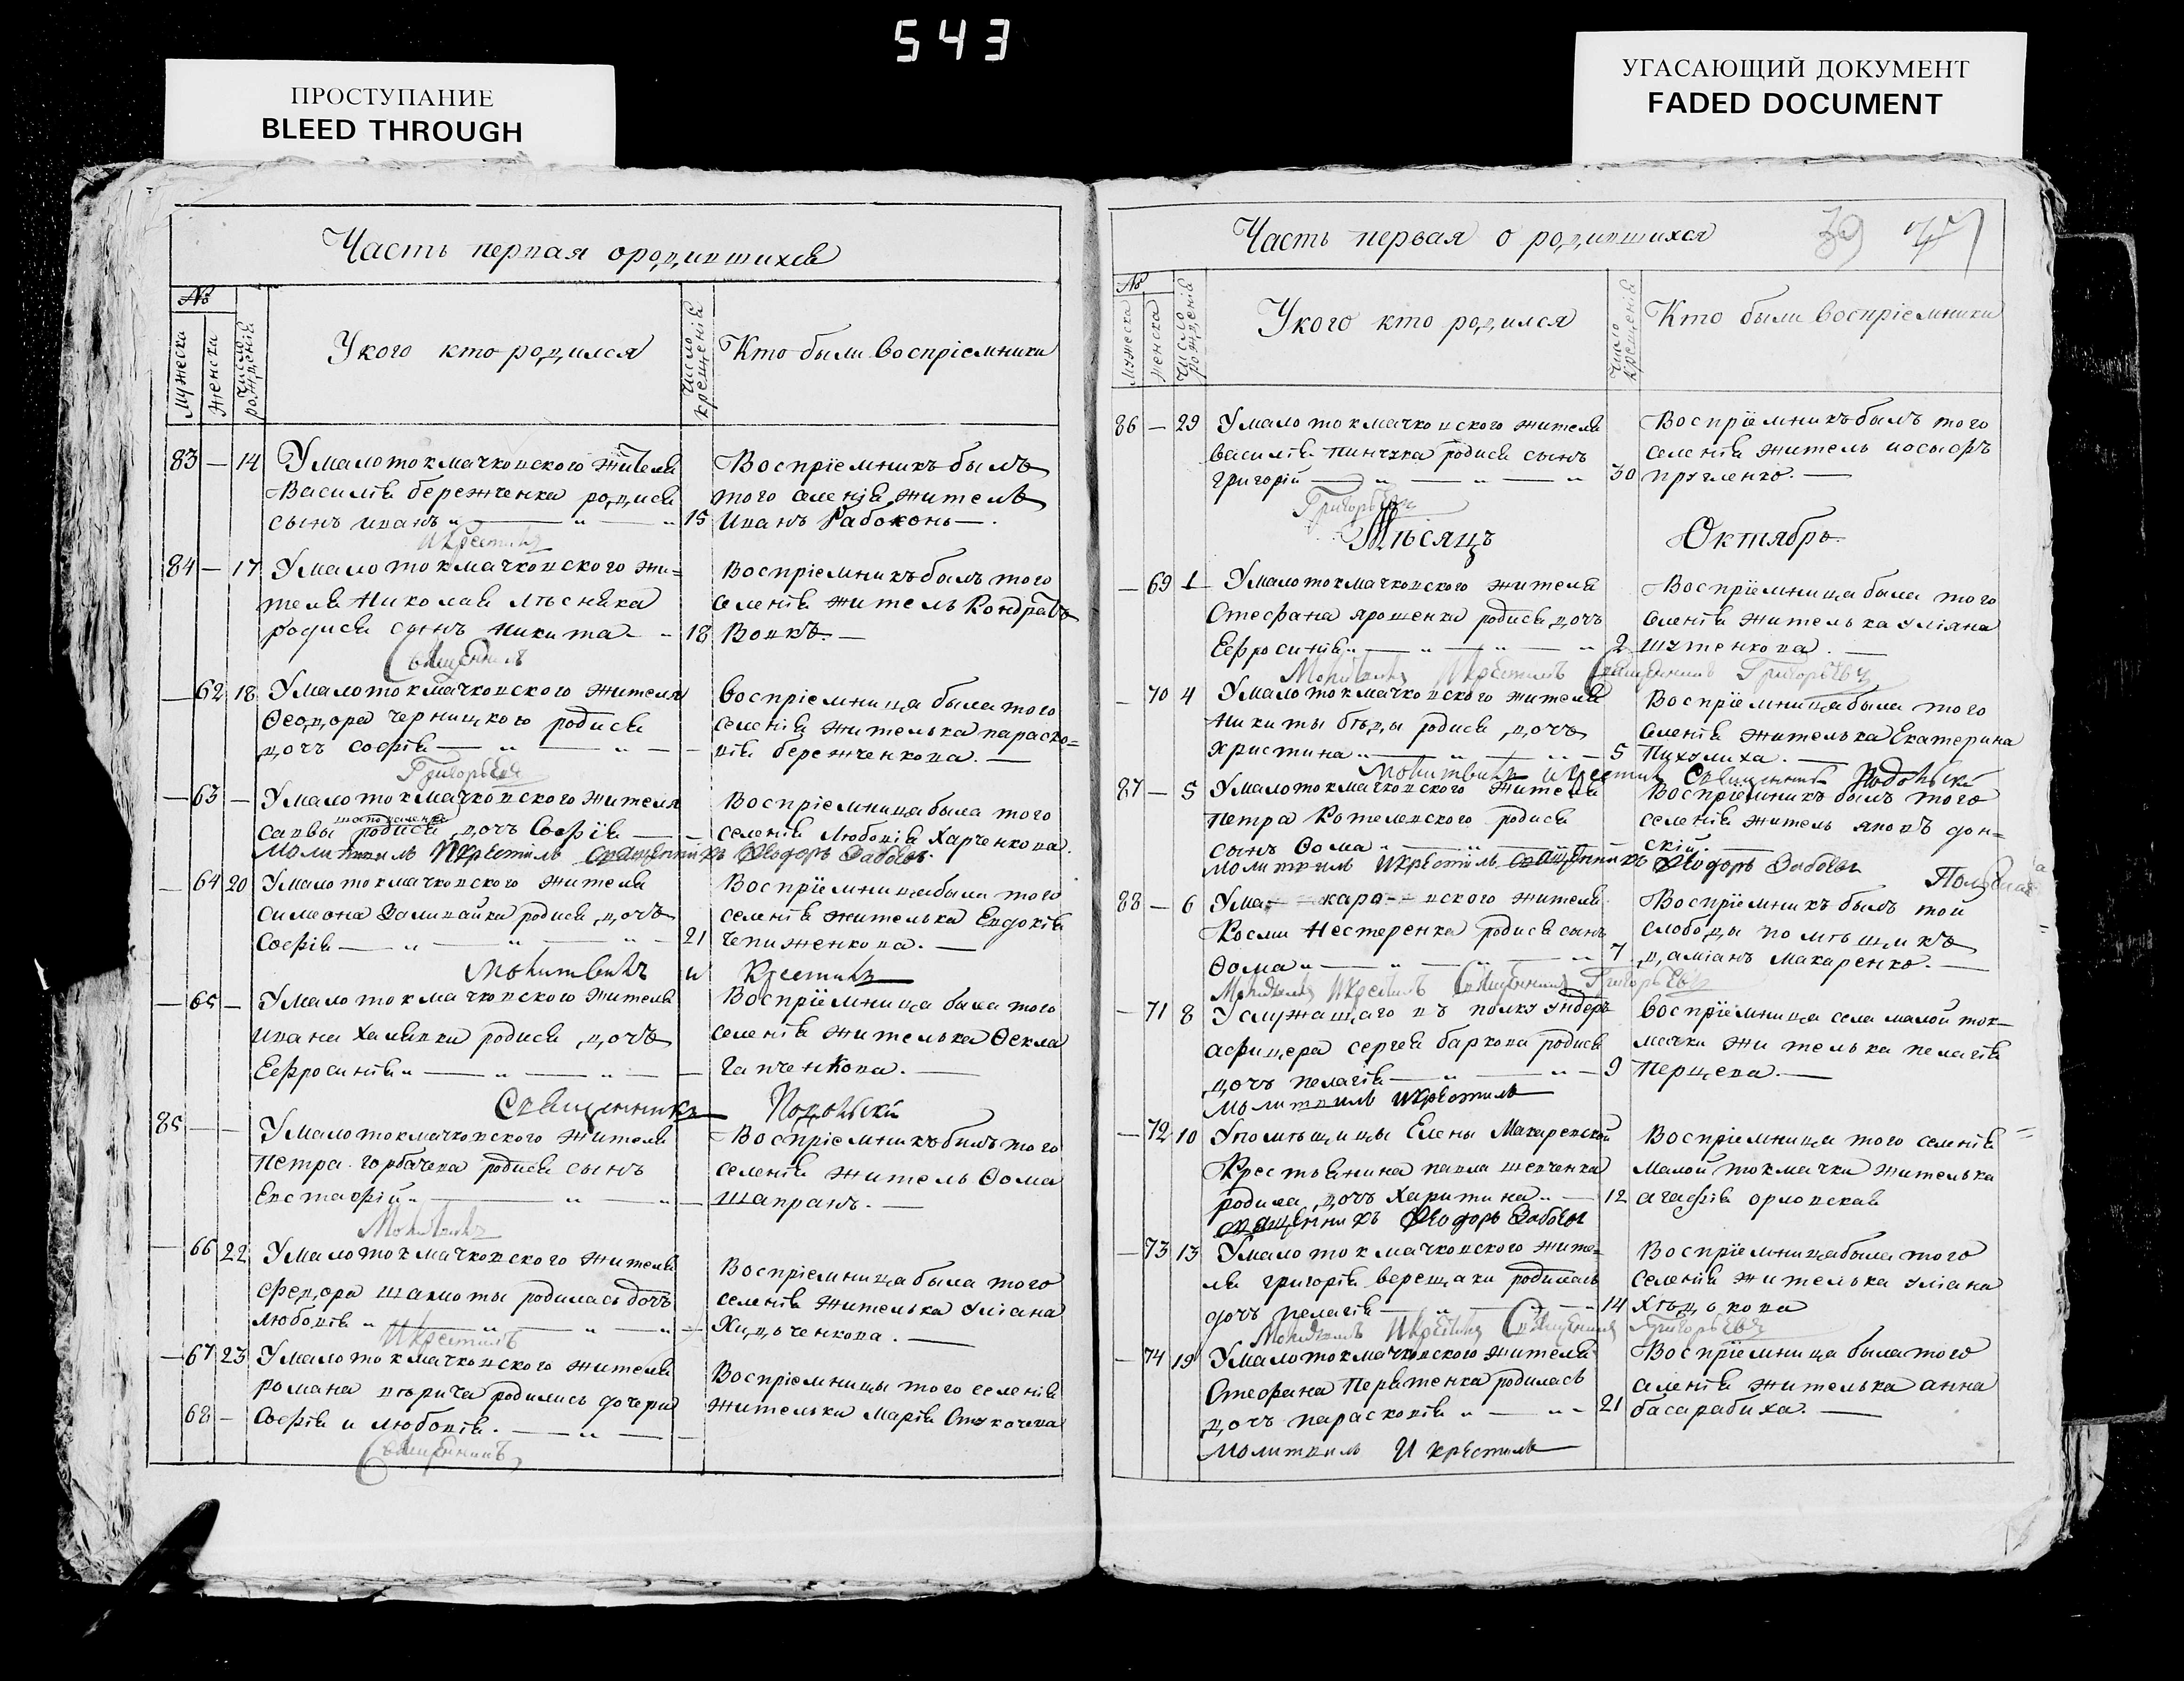 543
ПРОСТУПАНИЕ
BLEED THROUGH
УГАСАЮЩИЙ ДОКУМЕНТ
FADED DOCUMENT
Часть первая ородившихся
№
мужеска
женска
число рожденія
Укого кто родился
число крещенія
Кто были воспріемники
83 — 14 Умалотокмачковского жителя
Василія бережченка родися
сынъ иванъ 15
Воспріемникъ былъ
того селенія житель
Иванъ Рабоконь
икрестилъ
84 — 17 Умалотокмачковского жи=
теля Николая лѣсняка
родися сынъ никита 18
Воспріемникъ былъ того
селенія житель Кондратъ
Вовкъ
Священникъ
— 62 18 Умалотокмачковского жителя
Ѳеодора черницкого родися
дочъ софія —
воспріемница была того
селенія жителька параско=
вія бережченкова.
Григорьевъ
— 63 — Умалотокмачковского жителя
саввы родися дочъ Софія —
Воспріемница была того
селенія Любовія Харченкова.
молитвилъ Икрестилъ священникъ Ѳеодоръ
— 64 20 Умалотокмачковского жителя
симеона Заливайка родися дочъ
Софія 21
Воспріемница была того
селенія жителька Евдокія
чепиженкова.
Молитвилъ и Крестилъ
— 65 — Умалотокмачковского жителя
ивана Халявки родися дочъ
Ефросинія —
Воспріемница была того
селенія жителька Ѳекла
Гапченкова.
Священникъ Подольскій
85 — — Умалотокмачковского жителя
Петра горбачева родися сынъ
Евстафій —
Воспріемникъ былъ того
селенія житель Ѳома
шапранъ.
Молитвилъ
— 66 22 Умалотокмачковского жителя
федора шахоты родилась дочъ
любовія
Воспріемница была того
селенія жителька Уліана
Хидьченкова.
Икрестилъ
— 67 23 Умалотокмачковского жителя
романа родились дочери
68 — Софія и любовія.
Воспріемницы того селенія
жительки Марія Стукачева
Священникъ
Часть первая о родившихся
39
№
мужеска
женска
число рожденія
Укого кто родился
число крещенія
Кто были воспріемники
86 — 29 Умалотокмачковского жителя
василія пинчука родися сынъ
григорій 30
Воспріемникъ былъ того
селенія житель иосифъ
пругленко.
Григорьевъ
Мѣсяцъ Октябрь
— 69 1 Умалотокмачковского жителя
Стефана ярошенка родися дочъ
Ефросинія 2
Воспріемница была того
селенія жителька уліяна
шутенкова.
Молитвилъ Икрестилъ Священникъ Григорьевъ
— 70 4 Умалотокмачковского жителя
Никиты бѣды родися дочъ
христина 5
Воспріемница была того
селенія жителька Екатерина
Пихулиха.
Молитвилъ икрестилъ Священникъ Подольскій
87 — 5 Умалотокмачковского жителя
Петра Котелевского родися
сынъ Ѳома
Воспріемникъ былъ того
селенія житель яковъ дон=
скій.
молитвилъ Икрестилъ священникъ Ѳеодоръ
88 — 6 Ума каро вского жителя
Космы Нестеренка родися сынъ
Ѳома 7
Воспріемникъ былъ той
слободы помѣщикъ
даміанъ Макаренко.
Молитвилъ Икрестилъ Священникъ Григорьевъ
— 71 8 Услужащаго въ полку ундеръ
афицера сергея баркова родися
дочъ пелагія 9
воспріемница села малой ток=
мачки жителька пелагія
Перцева.
молитвилъ икрестилъ
— 72 10 Упомѣщицы Елены Макаревской
Крестьянина павла шевченка
родила дочъ Харитина 12
Воспріемница того селенія
малой токмачки жителька
агафія орловская
священникъ Ѳеодоръ
— 73 13 Умалотокмачковского жите=
ля григорія верещаки родилась
дочъ пелагія 14
Воспріемница была того
селенія жителька уліана
Хѣдькова
Молитвилъ Икрестилъ Священникъ Григорьевъ
— 74 19 Умалотокмачковского жителя
Стефана Перятенка родилась
дочъ парасковія 21
Воспріемница была того
селенія жителька анна
басарабиха.
молитвилъ И крестилъ